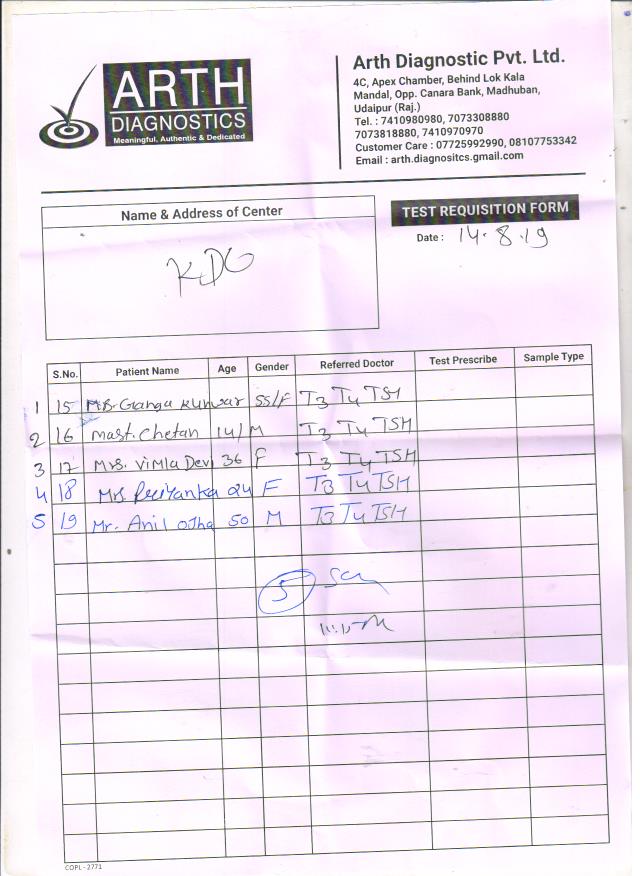 ARTH
DIAGNOSTICS
Meaningful, Authentic & Dedicated
Arth Diagnostic Pvt. Ltd.
4C, Apex Chamber, Behind Lok Kala
Mandal, Opp. Canara Bank, Madhuban,
Udaipur (Raj.)
Tel. : 7410980980, 7073308880
7073818880, 7410970970
Customer Care : 07725992990, 08107753342
Email : arth.diagnositcs.gmail.com
Name & Address of Center
TEST REQUISITION FORM
Date : 14.8.19
KDG
S.No. Patient Name Age Gender Referred Doctor Test Prescribe Sample Type
1 15 Mrs. Ganga Kunwar 55/F T3 T4 TSH
2 16 Mast. Chetan 14/M T3 T4 TSH
3 17 Mrs. Vimla Devi 36 F T3 T4 TSH
4 18 Mrs Priyanka 24 F T3 T4 TSH
5 19 Mr. Anil Ojha 50 M T3 T4 TSH
5
COPL - 2771